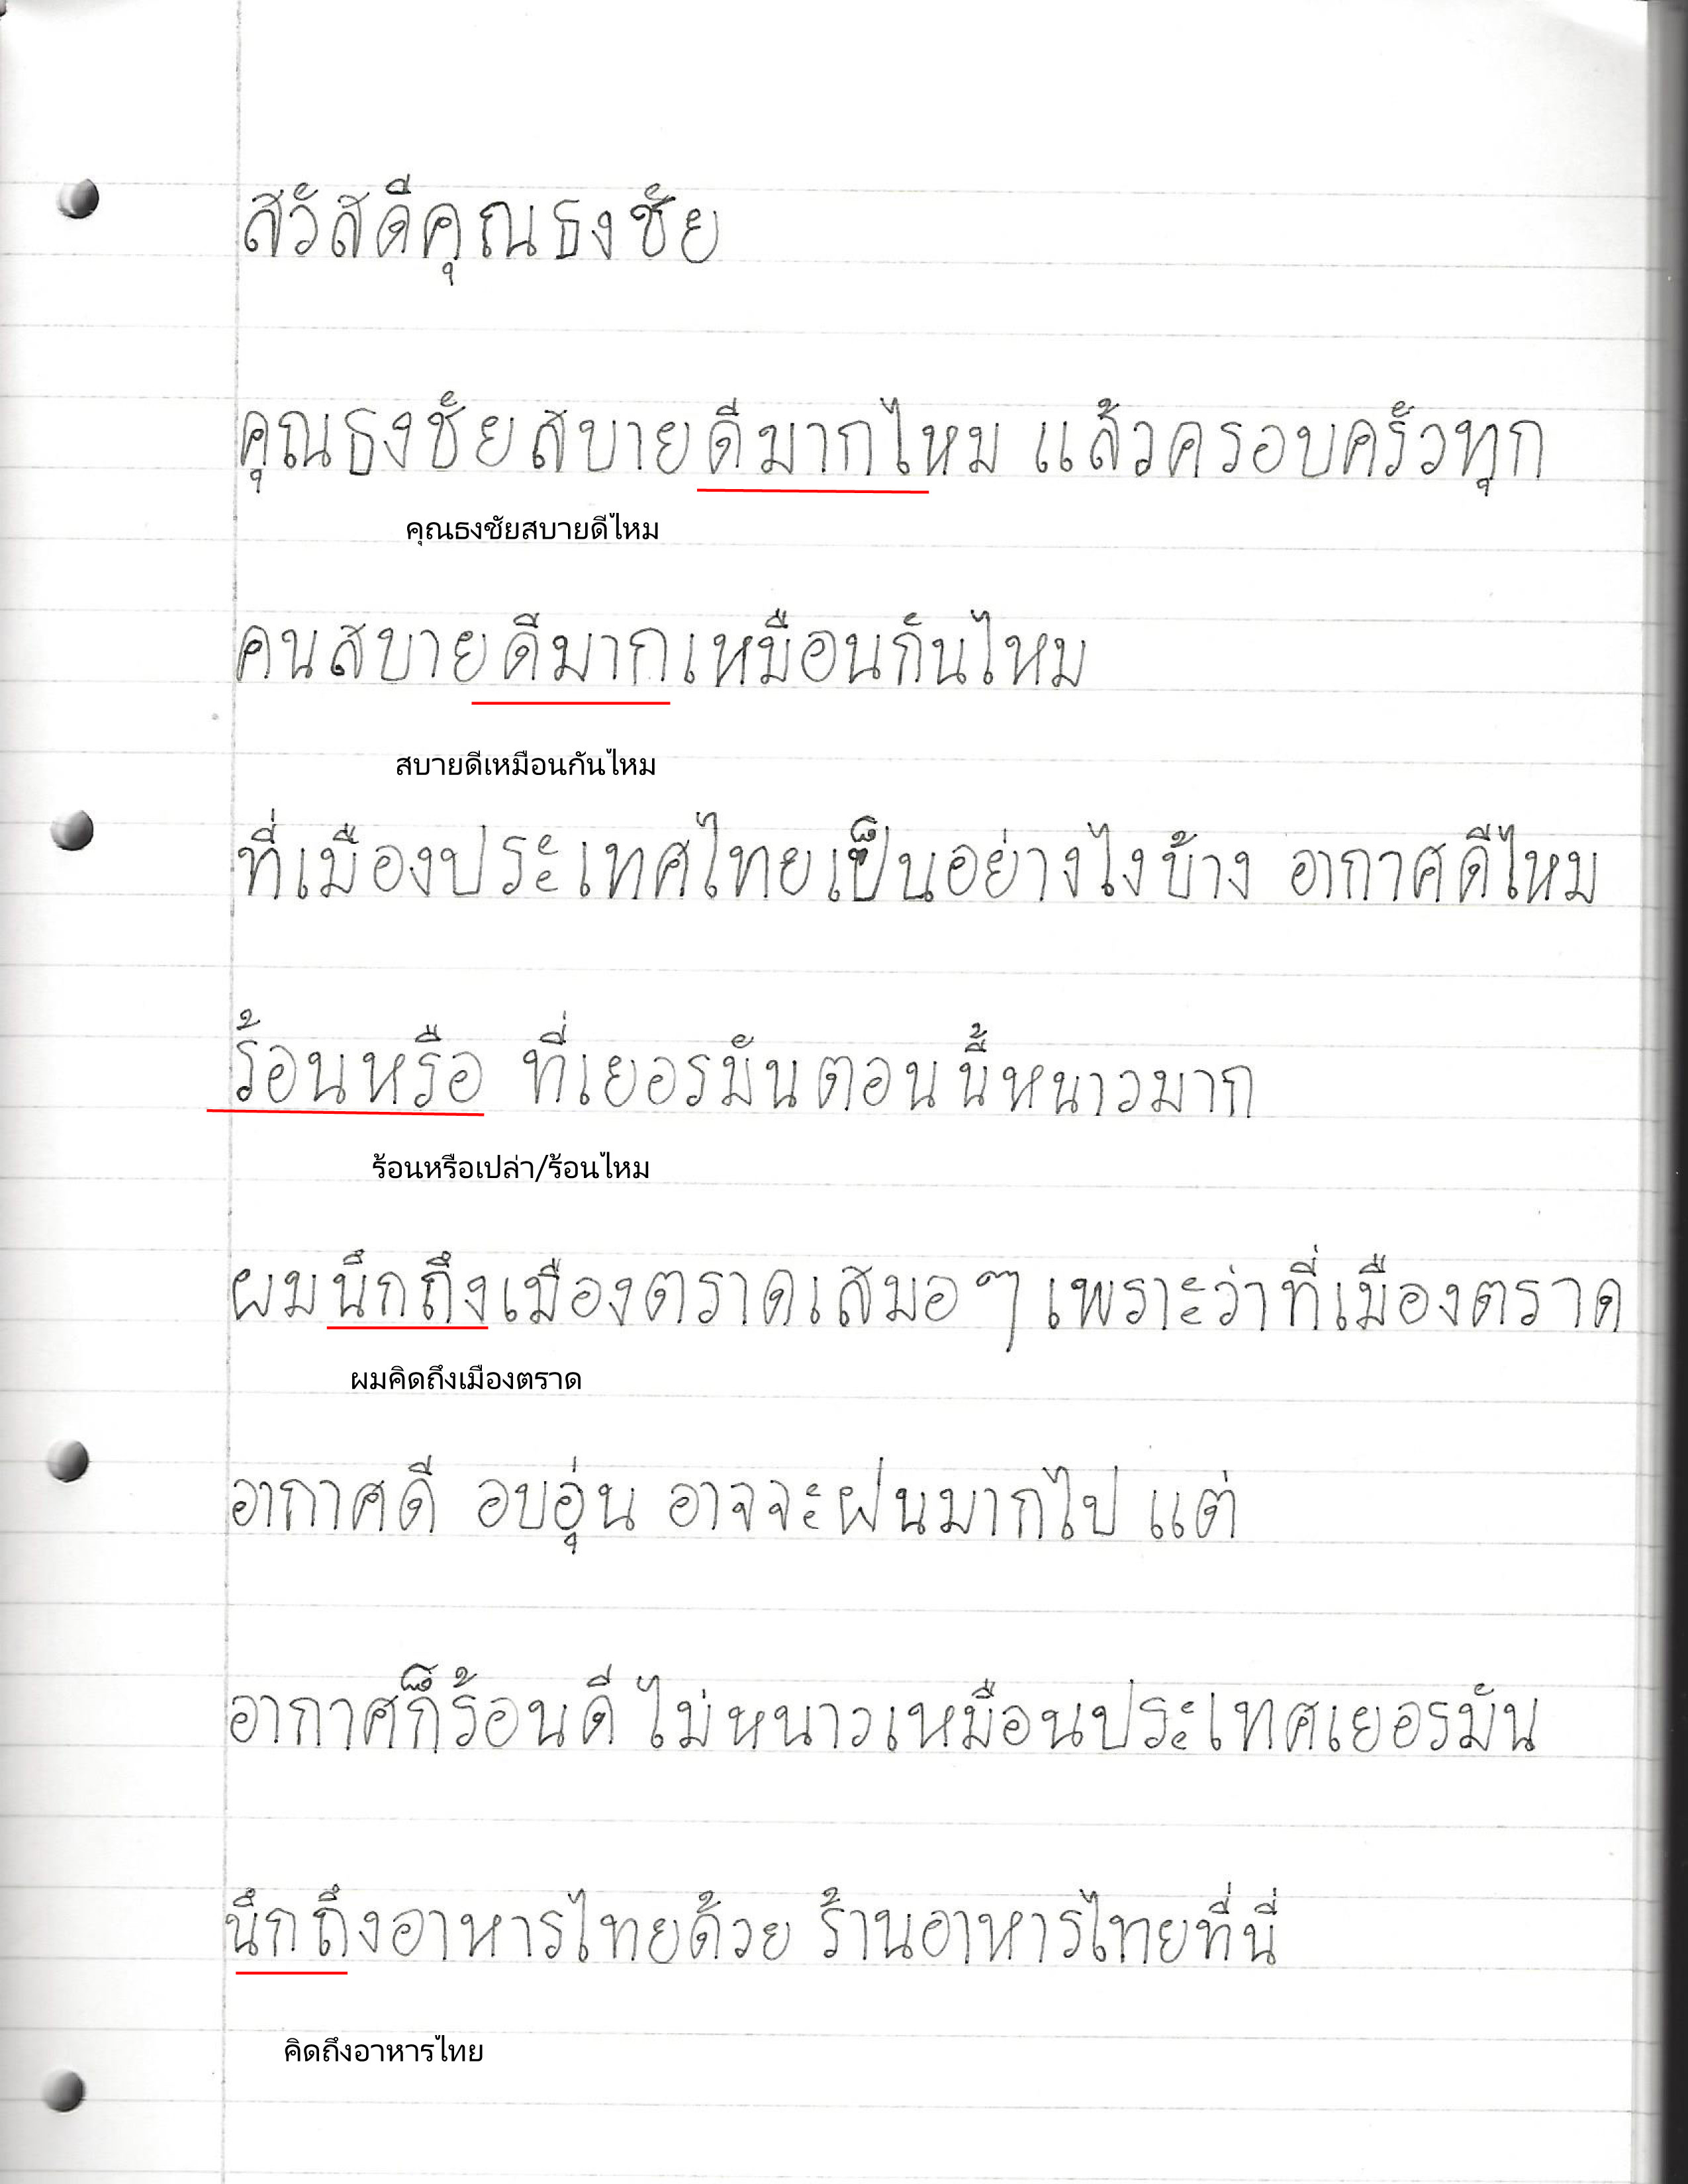 สวัสดีคุณธงชัย
คุณธงชัยสบายดีมากไหม แล้วครอบครัวทุก
คุณธงชัยสบายดีไหม
คนสบายดีมากเหมือนกันไหม
สบายดีเหมือนกันไหม
ที่เมืองประเทศไทยเป็นอย่างไงบ้าง อากาศดีไหม
ร้อนหรือ ที่เยอรมันตอนนี้หนาวมาก
ร้อนหรือเปล่า/ร้อนไหม
ผมนึกถึงเมืองตราดเสมอๆ เพราะว่าที่เมืองตราด
ผมคิดถึงเมืองตราด
อากาศดี อบอุ่น อาจจะฝนมากไป แต่
อากาศก็ร้อนดี ไม่หนาวเหมือนประเทศเยอรมัน
นึกถึงอาหารไทยด้วย ร้านอาหารไทยที่นี่
คิดถึงอาหารไทย